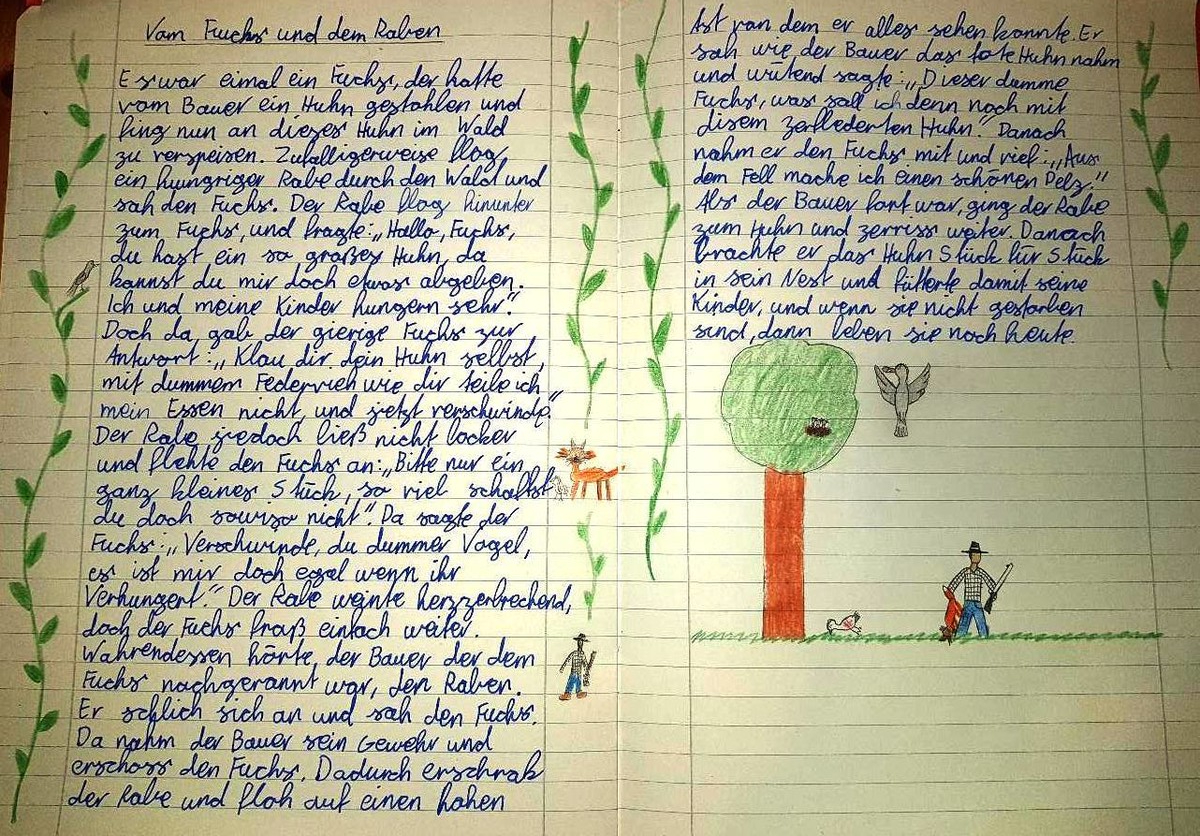 Vom Fuchs und dem Raben
Es war eimal ein Fuchs, der hatte
vom Bauer ein Huhn gestohlen und
fing nun an dieses Huhn im Wald
zu verspeisen. Zufälligerweise flog
ein hungriger Rabe durch den Wald und
sah den Fuchs. Der Rabe flog hinunter
zum Fuchs, und fragte: „Hallo, Fuchs,
du hast ein so großes Huhn, da
kannst du mir doch etwas abgeben.
Ich und meine Kinder hungern sehr."
Doch da, gab der gierige Fuchs zur
Antwort: „Klau dir dein Huhn selbst,
mit dummem Federvieh wie dir teile ich
mein Essen nicht, und jetzt verschwinde."
Der Rabe jedoch ließ nicht locker
und flehte den Fuchs an: „Bitte nur ein
ganz kleines Stück, so viel schaffst
du doch sowiso nicht". Da sagte der
Fuchs: „Verschwinde, du dummer Vogel,
es ist mir doch egal wenn ihr
Verhungert." Der Rabe weinte herzzerbrechend,
doch der Fuchs fraß einfach weiter.
Währendessen hörte, der Bauer der dem
Fuchs nachgerannt war, den Raben.
Er schlich sich an und sah den Fuchs.
Da nahm der Bauer sein Gewehr und
erschoss den Fuchs. Dadurch erschrak
der Rabe und floh auf einen hohen
Ast von dem er alles sehen konnte. Er
sah wie der Bauer das tote Huhn nahm
und wütend sagte: „Dieser dumme
Fuchs, was soll ich denn noch mit
disem zerflederten Huhn." Danach
nahm er den Fuchs mit und rief: „Aus
dem Fell mache ich einen schönen Pelz."
Als der Bauer fort war, ging der Rabe
zum Huhn und zerriss weiter. Danach
brachte er das Huhn Stück für Stück
in sein Nest und fütterte damit seine
Kinder, und wenn sie nicht gestorben
sind, dann leben sie noch heute.